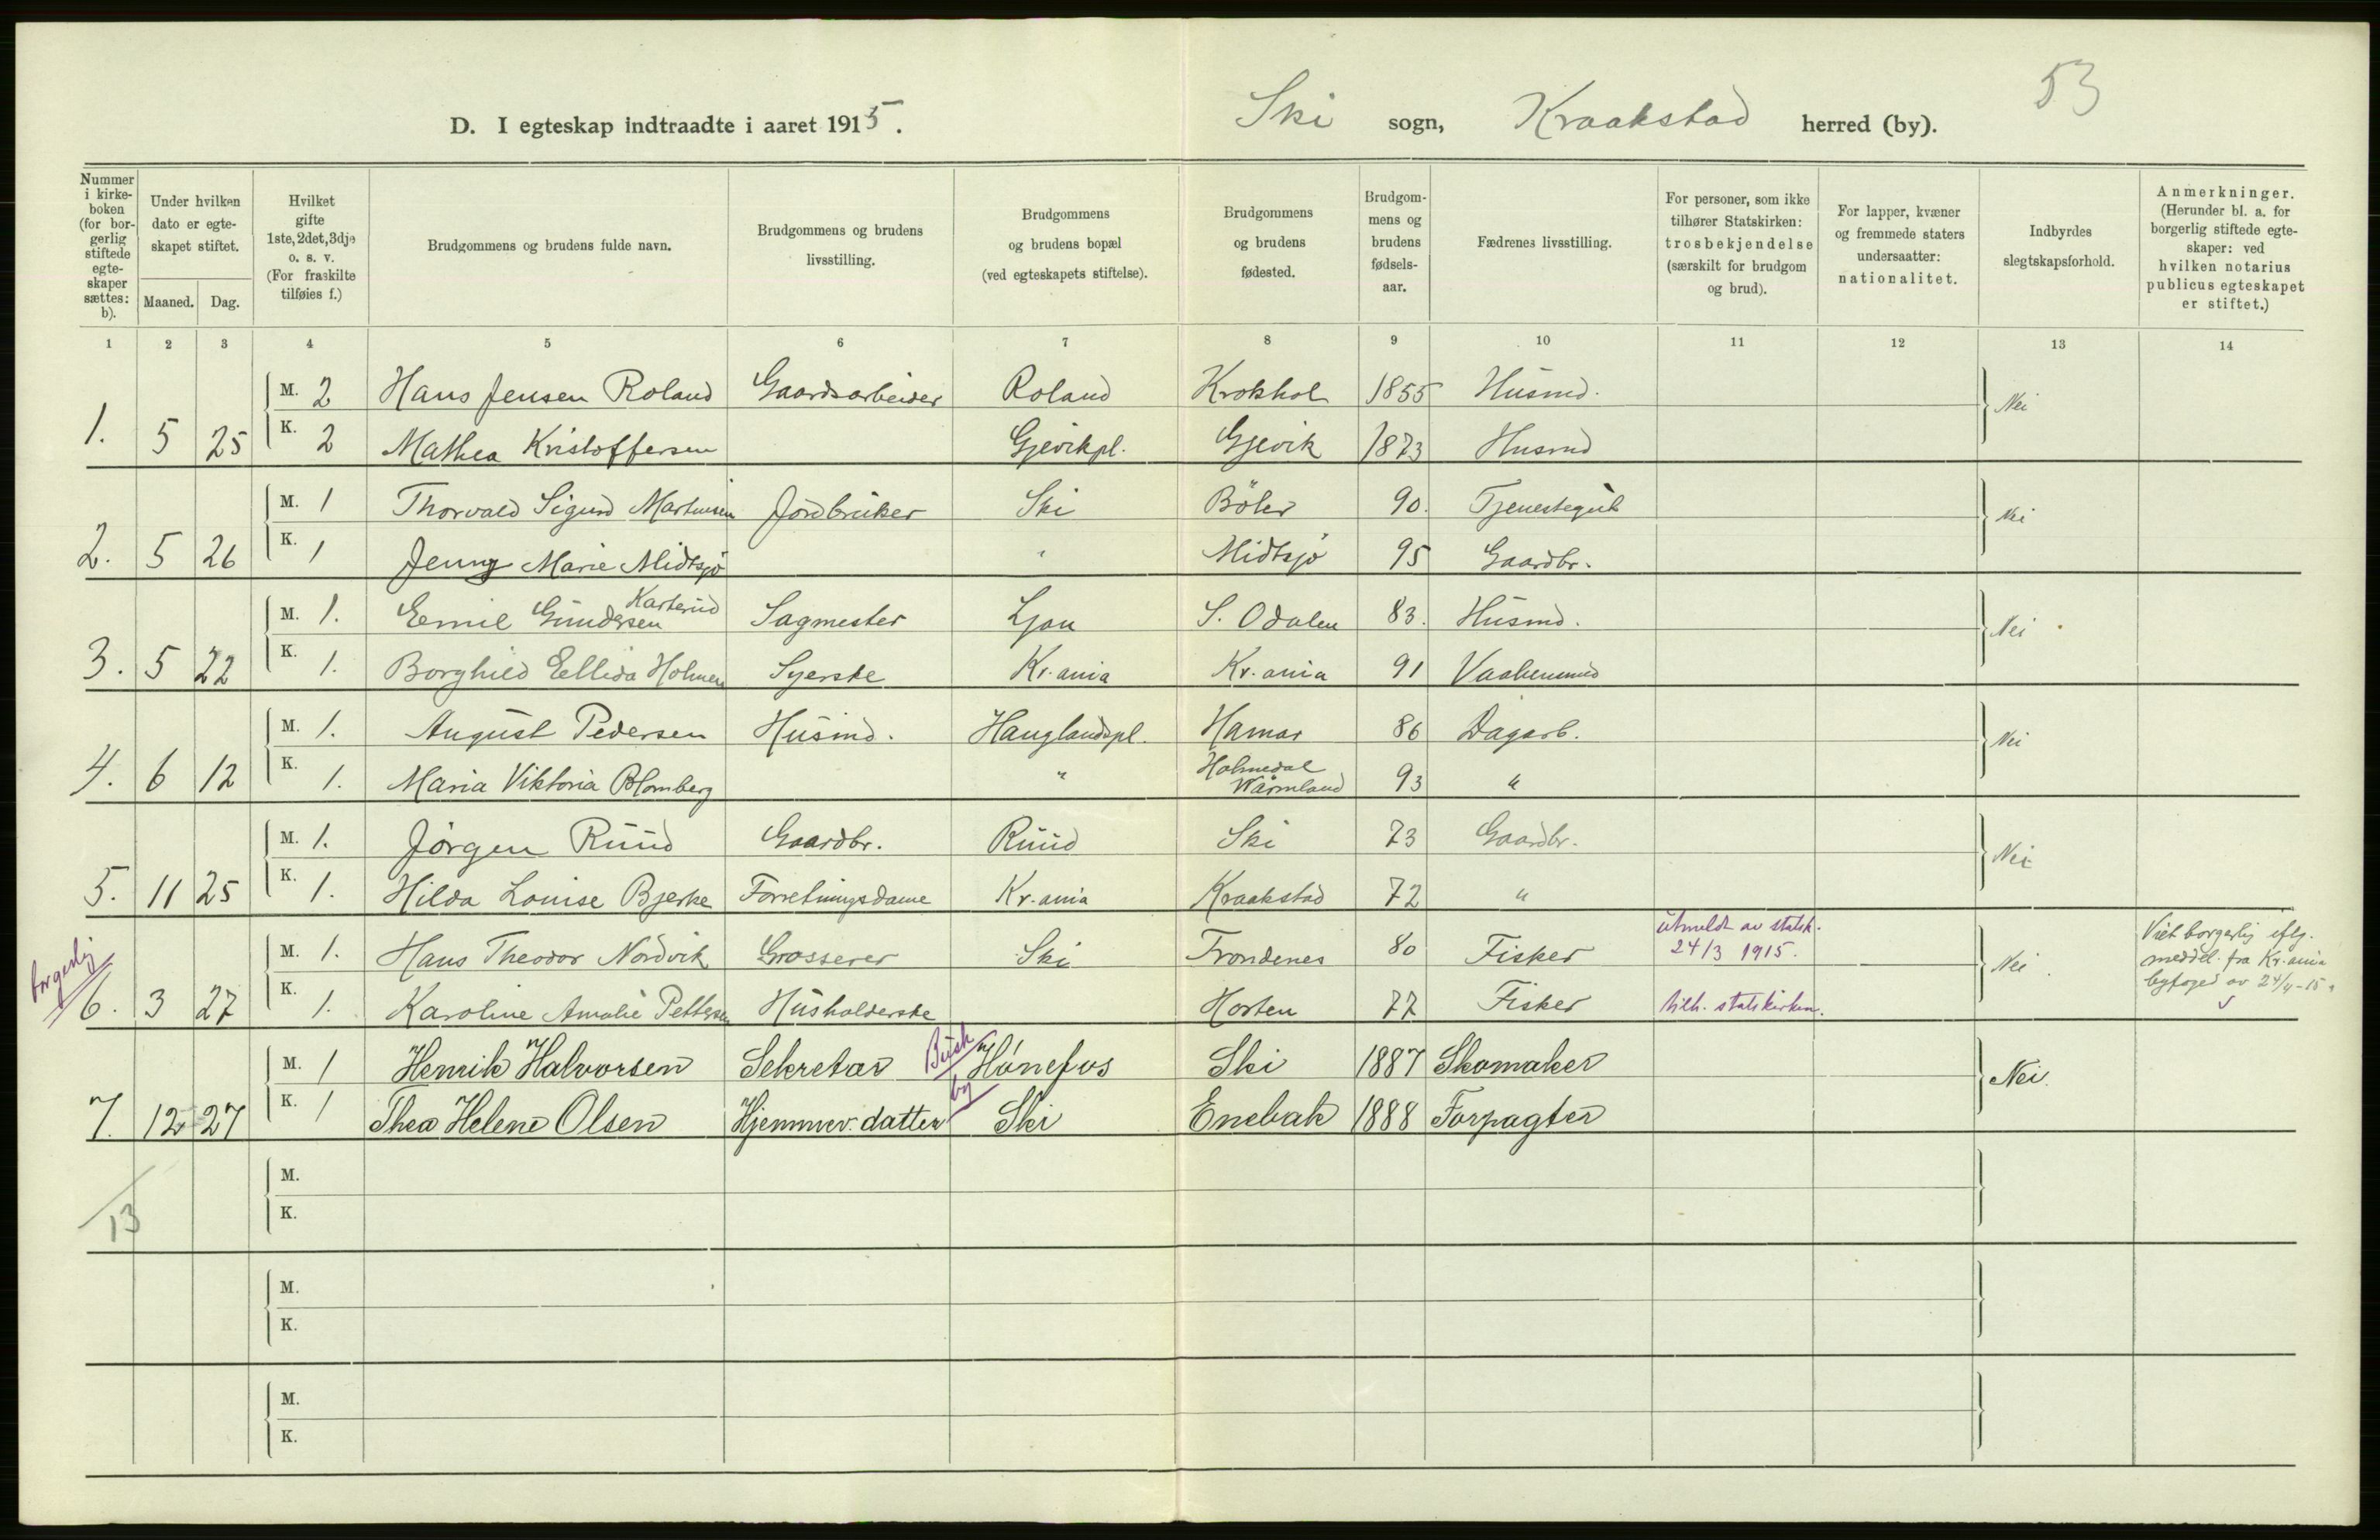 53
D. I egteskap indtraadte i aaret 1915. Ski sogn, Kraakstad herred (by).
Nummer i kirkeboken (for borgerlig stiftede egteskaper sættes: b).
Under hvilken dato er egteskapet stiftet.
Maaned. Dag.
Hvilket gifte 1ste, 2det, 3dje o. s. v. (For fraskilte tilføies f.)
Brudgommens og brudens fulde navn.
Brudgommens og brudens livsstilling.
Brudgommens og brudens bopæl (ved egteskapets stiftelse).
Brudgommens og brudens fødested.
Brudgommens og brudens fødselsaar.
Fædrenes livsstilling.
For personer, som ikke tilhører Statskirken: trosbekjendelse (særskilt for brudgom og brud).
For lapper, kvæner og fremmede staters undersaatter: nationalitet.
Indbyrdes slegtskapsforhold.
Anmerkninger. (Herunder bl. a. for borgerlig stiftede egteskaper: ved hvilken notarius publicus egteskapet er stiftet.)
1 2 3 4 5 6 7 8 9 10 11 12 13 14
M. 2 Hans Jensen Roland Gaardsarbeider Roland Krokhol 1855 Husmd. Nei
1. 5 25 K. 2 Mathea Kristoffersen Gjevikpl. Gjevik 1873 Husmd
M. 1 Thorvald Sigurd Martinsen Jordbruker Ski Böler 90. Tjenestegut Nei
2. 5 26 K. 1 Jenny Marie Midtsjö " Midtsjö 95 Gaardbr.
M. 1. Eemil Gundersen Karterud Sagmester Ljan S. Odalen 83. Husmd. Nei
3. 5 22 K. 1. Borghild Ellida Holmen Syerske Kr.ania Kr.ania 91 Vaabenmd
M. 1. August Pedersen Husmd. Hauglandspl. Hamar 86 Dagarb. Nei
4. 6 12 K. 1. Maria Viktoria Blomberg " Holmedal Wärmland 93 "
M. 1. Jörgen Ruud Gaardbr. Ruud Ski 73 Gaardbr. Nei
5. 11 25 K. 1. Hilda Louise Bjerke Forretningsdame Kr.ania Kraakstad 72 "
borgerlig
M. 1. Hans Theodor Nordvik Grosserer Ski Trondenes 80 Fisker utmeldt av statsk. 24/3 1915. Nei Viet borgerlig iflg. meddel. fra Kr.ania byfoged av 24/4-15
6. 3 27 K. 1. Karoline Amalie Pettersen Husholderske Horten 77 Fisker tilh. statskirken.
M. 1 Henrik Halvorsen Sekretær Busk Hónefos Ski 1887 Skomaker Nei.
7. 12 27 K. 1 Thea Helene Olsen Hjemmev. datter by Ski Enebak 1888 Forpagter
M.
13 K.
M.
K.
M.
K.